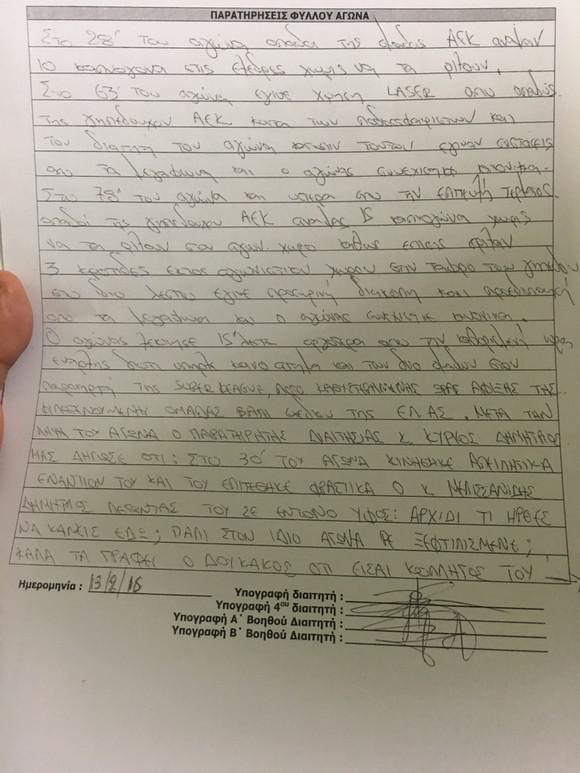 ΠΑΡΑΤΗΡΗΣΕΙΣ ΦΥΛΛΟΥ ΑΓΩΝΑ
Στο 28' του αγώνα οπαδοί της ομάδας ΑΕΚ άναψαν
10 καπνογόνα στις εξέδρες χωρίς να τα ρίξουν,
Στο 63' του αγώνα έγινε χρήση LASER απο οπαδούς
της γηπεδούχου ΑΕΚ κατά των ποδοσφαιριστών και
του διαιτητή του αγώνα κατόπιν τούτου έγιναν συστάσεις
απο τα μεγάφωνα και ο αγώνας συνεχίστηκε
Στο 78' του αγώνα και ύστερα απο την επίτευξη τέρματος
οπαδοί της γηπεδούχου ΑΕΚ άναψαν 15 καπνογόνα χωρίς
να τα ρίξουν στον αγων. χώρο καθώς επίσης έριξαν
3 κροτίδες εκτός αγωνιστικού χώρου στην του γηπέδου
στο ίδιο λεπτό έγινε διακοπή και προειδοποίηση
απο τα μεγάφωνα και ο αγώνας συνεχίστηκε κανονικά.
Ο αγώνας ξεκίνησε 15 λεπτά αργότερα απο την καθορισμένη ώρα
έναρξης διότι υπήρξε κοινό αίτημα και των δύο ομάδων στον
παρατηρητή της SUPER LEAGUE, ΛΟΓΩ ΚΑΘΥΣΤΕΡΗΜΕΝΗΣ ΑΦΙΞΗΣ ΤΗΣ
ΦΙΛΟΞΕΝΟΥΜΕΝΗΣ ΟΜΑΔΑΣ ΒΑΣΗ ΤΗΣ ΕΛ.ΑΣ. ΜΕΤΑ ΤΗΝ
ΛΗΞΗ ΤΟΥ ΑΓΩΝΑ Ο ΠΑΡΑΤΗΡΗΤΗΣ ΔΙΑΙΤΗΣΙΑΣ Κ. ΚΥΡΚΟΣ ΔΗΜΗΤΡΙΟΣ
ΜΑΣ ΔΗΛΩΣΕ ΟΤΙ: ΣΤΟ 30' ΤΟΥ ΑΓΩΝΑ ΚΙΝΗΘΗΚΕ ΑΠΕΙΛΗΤΙΚΑ
ΕΝΑΝΤΙΟΝ ΤΟΥ ΚΑΙ ΤΟΥ ΕΠΙΤΕΘΗΚΕ ΦΡΑΣΤΙΚΑ Ο Κ. ΜΕΛΙΣΣΑΝΙΔΗΣ
ΔΗΜΗΤΡΙΟΣ ΛΕΓΟΝΤΑΣ ΤΟΥ ΣΕ ΕΝΤΟΝΟ ΥΦΟΣ: ΑΡΧΙΔΙ ΤΙ ΗΡΘΕΣ
ΝΑ ΚΑΝΕΙΣ ΕΔΩ; ΠΑΛΙ ΣΤΟΝ ΙΔΙΟ ΑΓΩΝΑ ΡΕ ΞΕΦΤΙΛΙΣΜΕΝΕ;
ΚΑΛΑ ΤΑ ΓΡΑΦΕΙ Ο ΔΟΥΚΑΚΟΣ ΟΤΙ ΕΙΣΑΙ ΚΩΛΛΗΤΟΣ ΤΟΥ
Ημερομηνία : 13/2/16
Υπογραφή διαιτητή :
Υπογραφή 4ου διαιτητή :
Υπογραφή Α΄ Βοηθού Διαιτητή :
Υπογραφή Β΄ Βοηθού Διαιτητή :